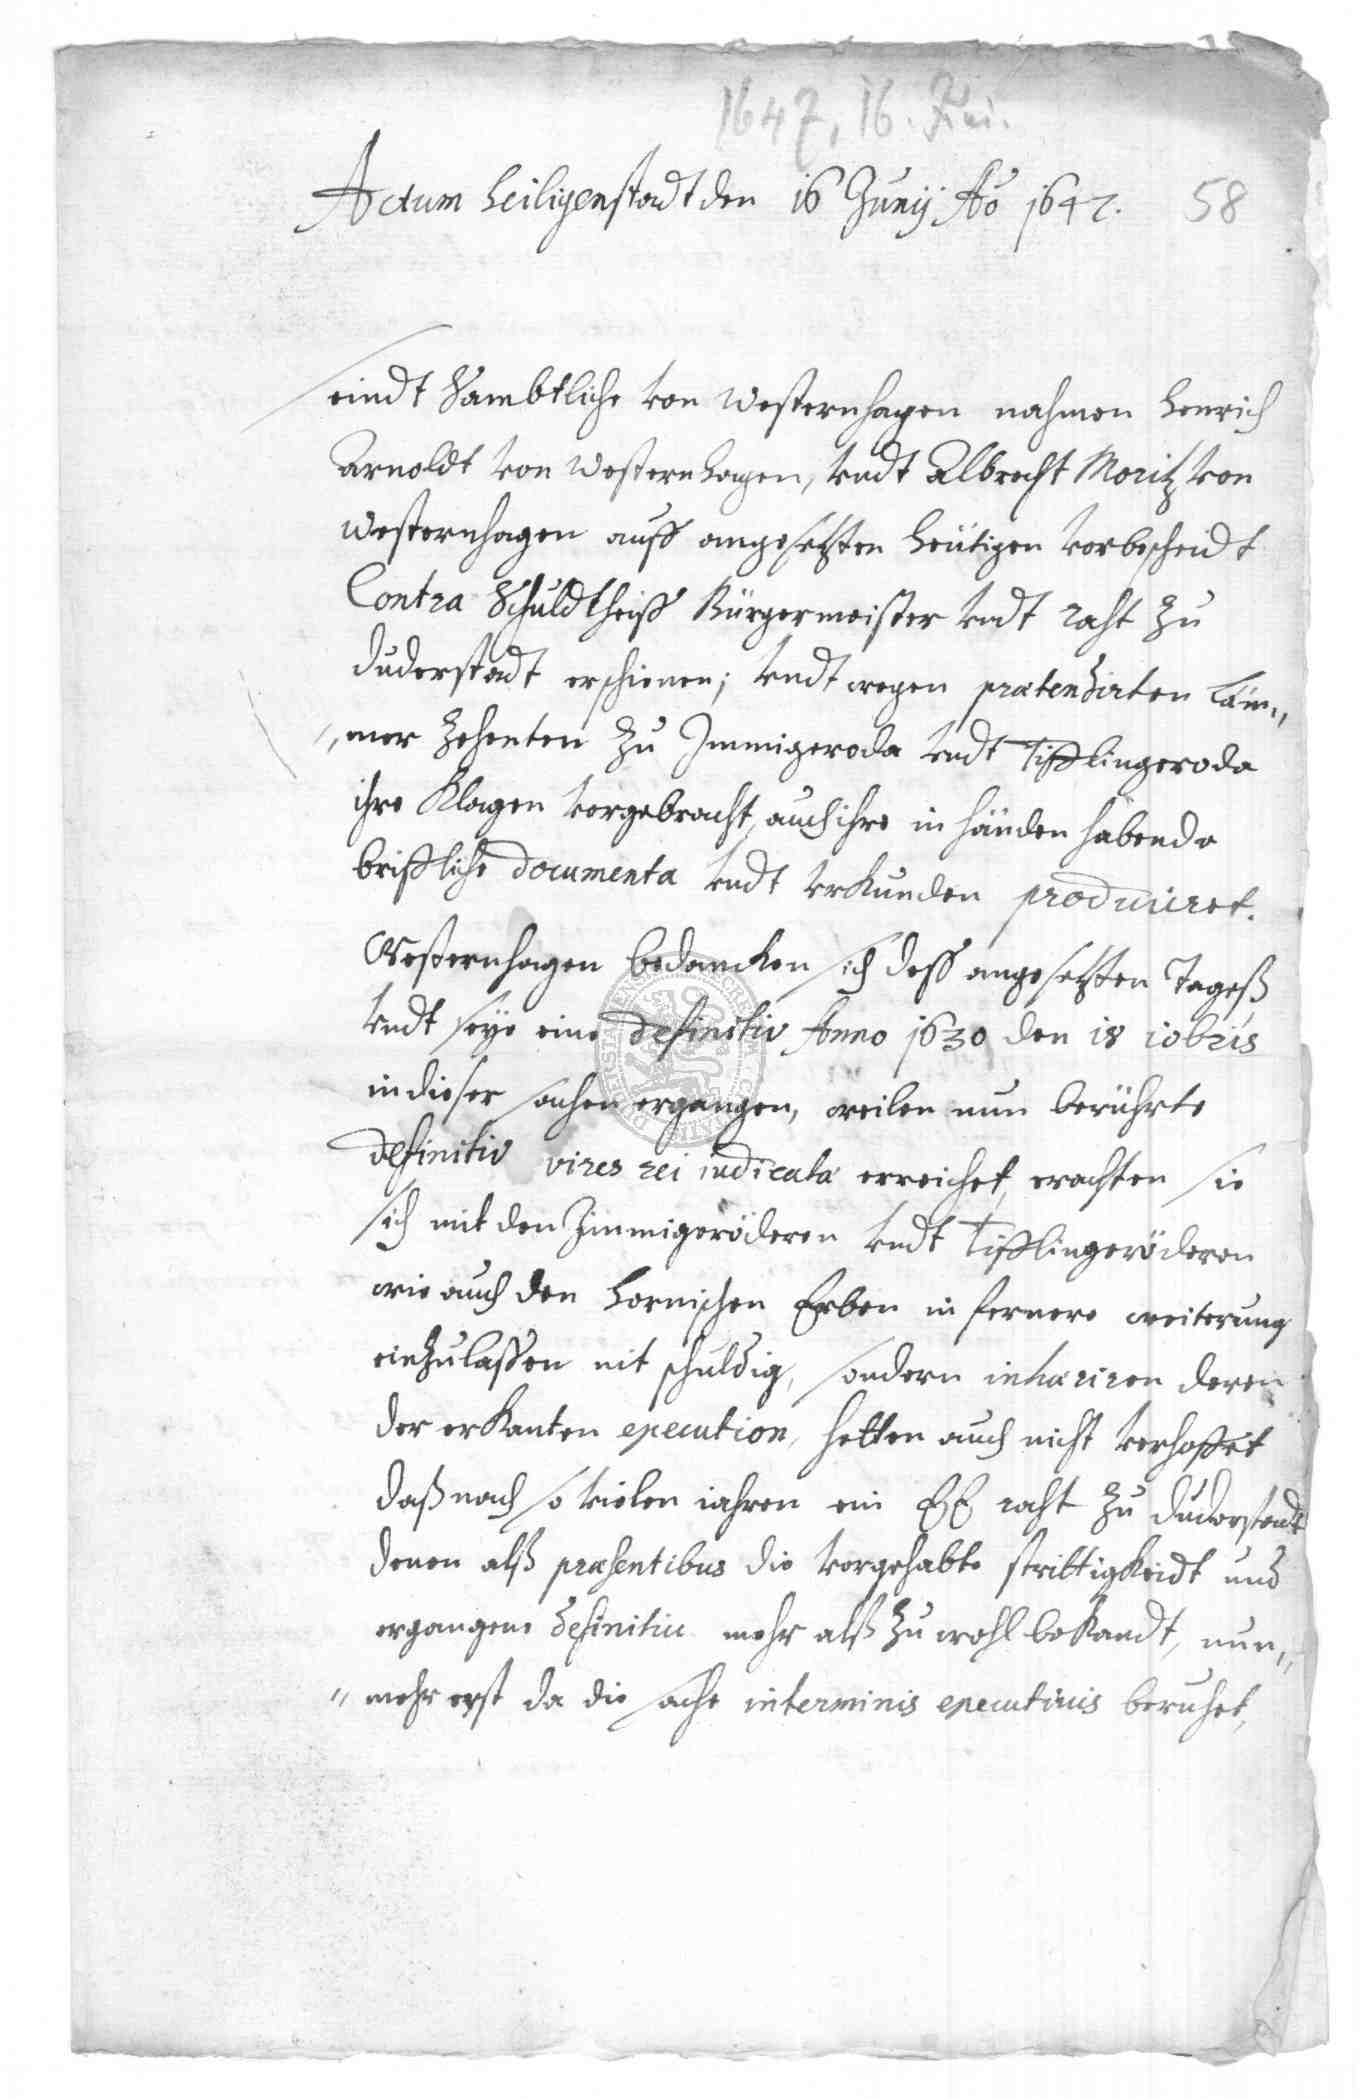 1647, 16. Juni.
Actum heiligenstadt den 16 Junij Ao 1647.
58
seindt Sambtliche von Westernhagen nahmen Henrich
Arnoldt von Westernhagen, vndt Albrecht Moritz von
Westernhagen auff angesetzten heütigen vorbescheidt
Contra Schuldtheiß Bürgermeister vndt raht zu
duderstadt erschienen; vndt wegen prætendirten Läm„
„mer Zehenten zu Immigeroda vndt Tifflingeroda
ihre Klagen vorgebracht, auch ihre in händen habende
brifliche documenta vndt vrkunden produciret.
Westernhagen bedancken sich deß angesetzten Tageß
vndt seye eine definitiv Anno 1630 den 18 10bris
in dieser sachen ergangen, weilen nun berührte
definitiv vires rei iudicatæ erreichet, erachten sie
sich mit den Immigeröderen vndt Tifflingeröderen
wie auch den hornischen Erben in fernere weiterung
einzulaßen nit schuldig, sondern inhæriren deren
der erkanten execution, hetten auch nicht verhoffet
daß nach so vielen iahren ein EE raht zu duderstadt
denen alß præsentibus die vorgehabte strittigkeidt und
ergangene definitiu mehr alß zu wohl bekandt, nun„
„mehr erst da die sache in terminis executiuis beruhet,